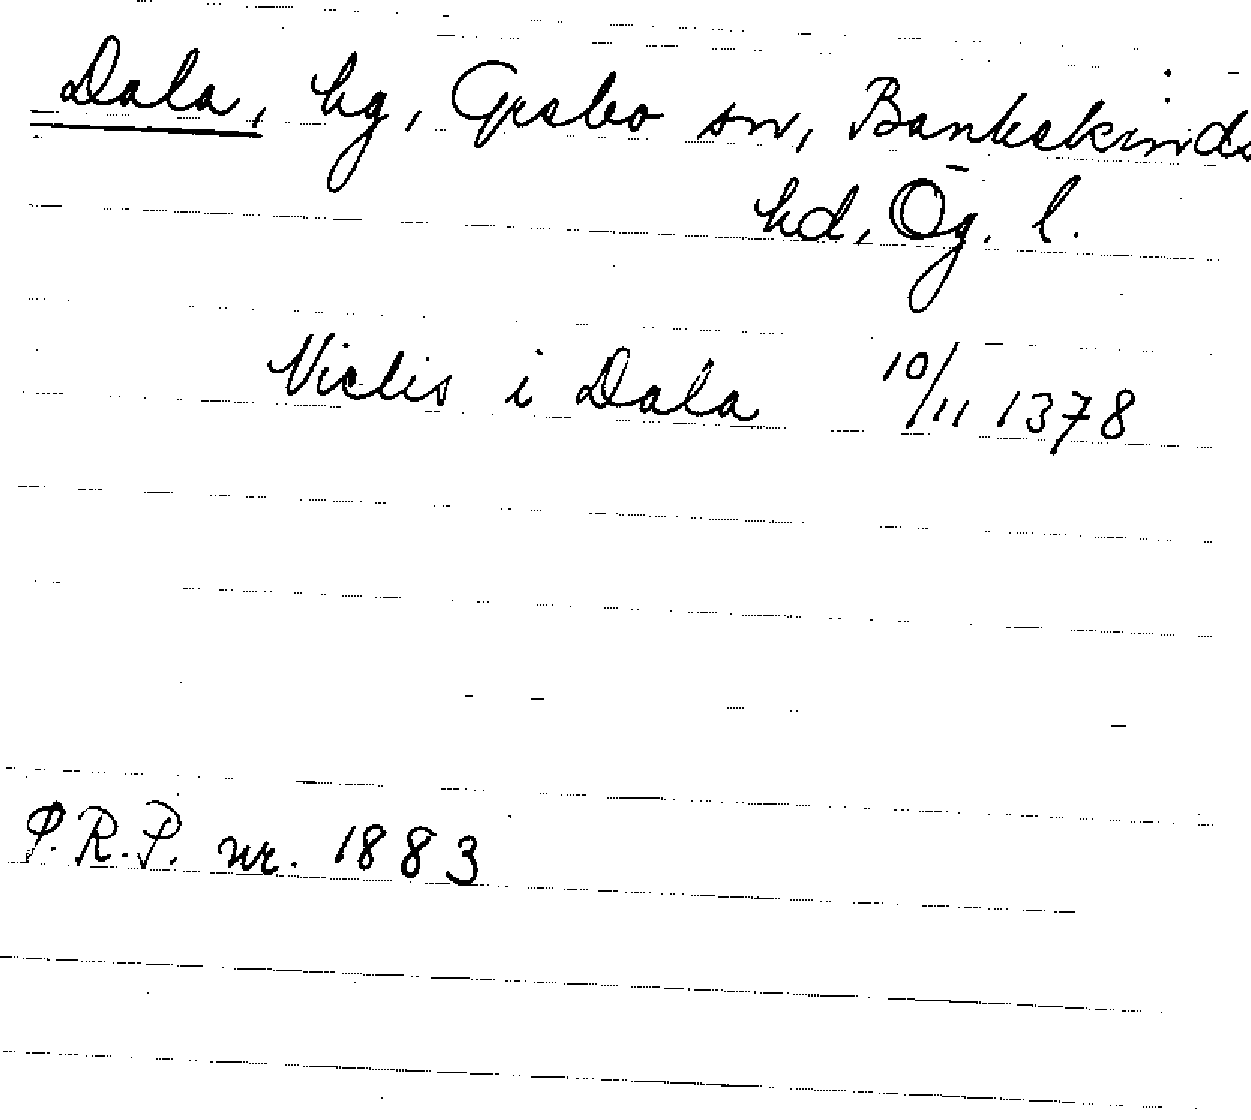 Dala, hg, Grebo sn, Bankekinds
hd, Ög. l.
Niclis i Dala 10/11 1378
P.R.P. nr. 1883